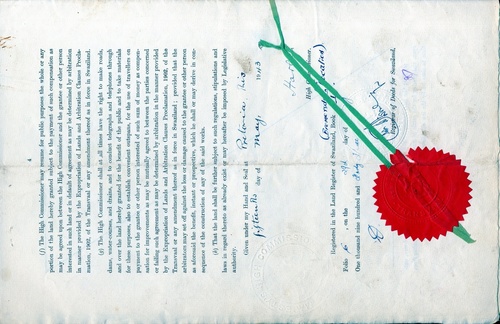 4
(f) The High Commissioner may resume for public purposes the whole or any
portion of the land hereby granted subject to the payment of such compensation as
may be agreed upon between the High Commissioner and the grantee or other person
interested in such land or in default of agreement as may be determined by arbitration
in manner provided by the Expropriation of Lands and Arbitration Clauses Procla-
mation, 1902, of the Transvaal or any amendment thereof as in force in Swaziland.
(g) The High Commissioner shall at all times have the right to make roads,
dams, water-courses, and drains, and to conduct telegraphs and telephones through
and over the land hereby granted for the benefit of the public and to take materials
for these purposes, also to establish convenient outspans, for the use of travellers on
payment to the grantee or other person interested of such sum of money as compen-
sation for improvements as may be mutually agreed to between the parties concerned
or failing such agreement as may be determined by arbitration in the manner provided
by the Expropriation of Lands and Arbitration Clauses Proclamation, 1902, of the
Transvaal or any amendment thereof as in force in Swaziland; provided that the
arbitrators may set off against the loss or damage caused to the grantee or other person
as aforesaid the benefit, instant or prospective, which he shall or may derive in con-
sequence of the construction of any of the said works.
(h) That the land shall be further subject to such regulations, stipulations and
laws in regard thereto as already exist or may hereafter be imposed by Legislative
authority.
Given under my Hand and Seal at Pretoria this
fifteenth day of May 1913
High
Registered in the Land Register of Swaziland, Book
Folio on the day of
One thousand nine hundred and
Registrar of Deeds for Swaziland.